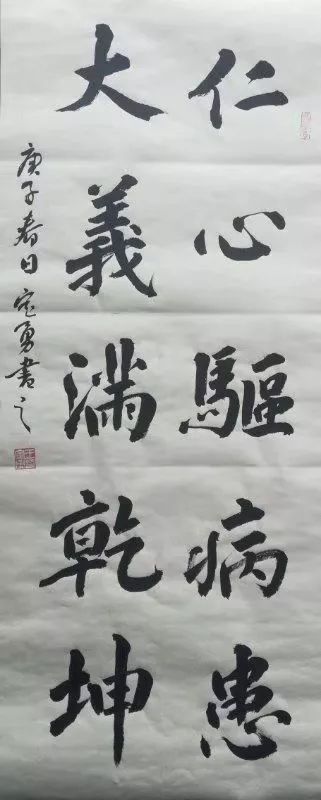 仁心驅病患
大義滿乾坤
庚子春日定勇書之